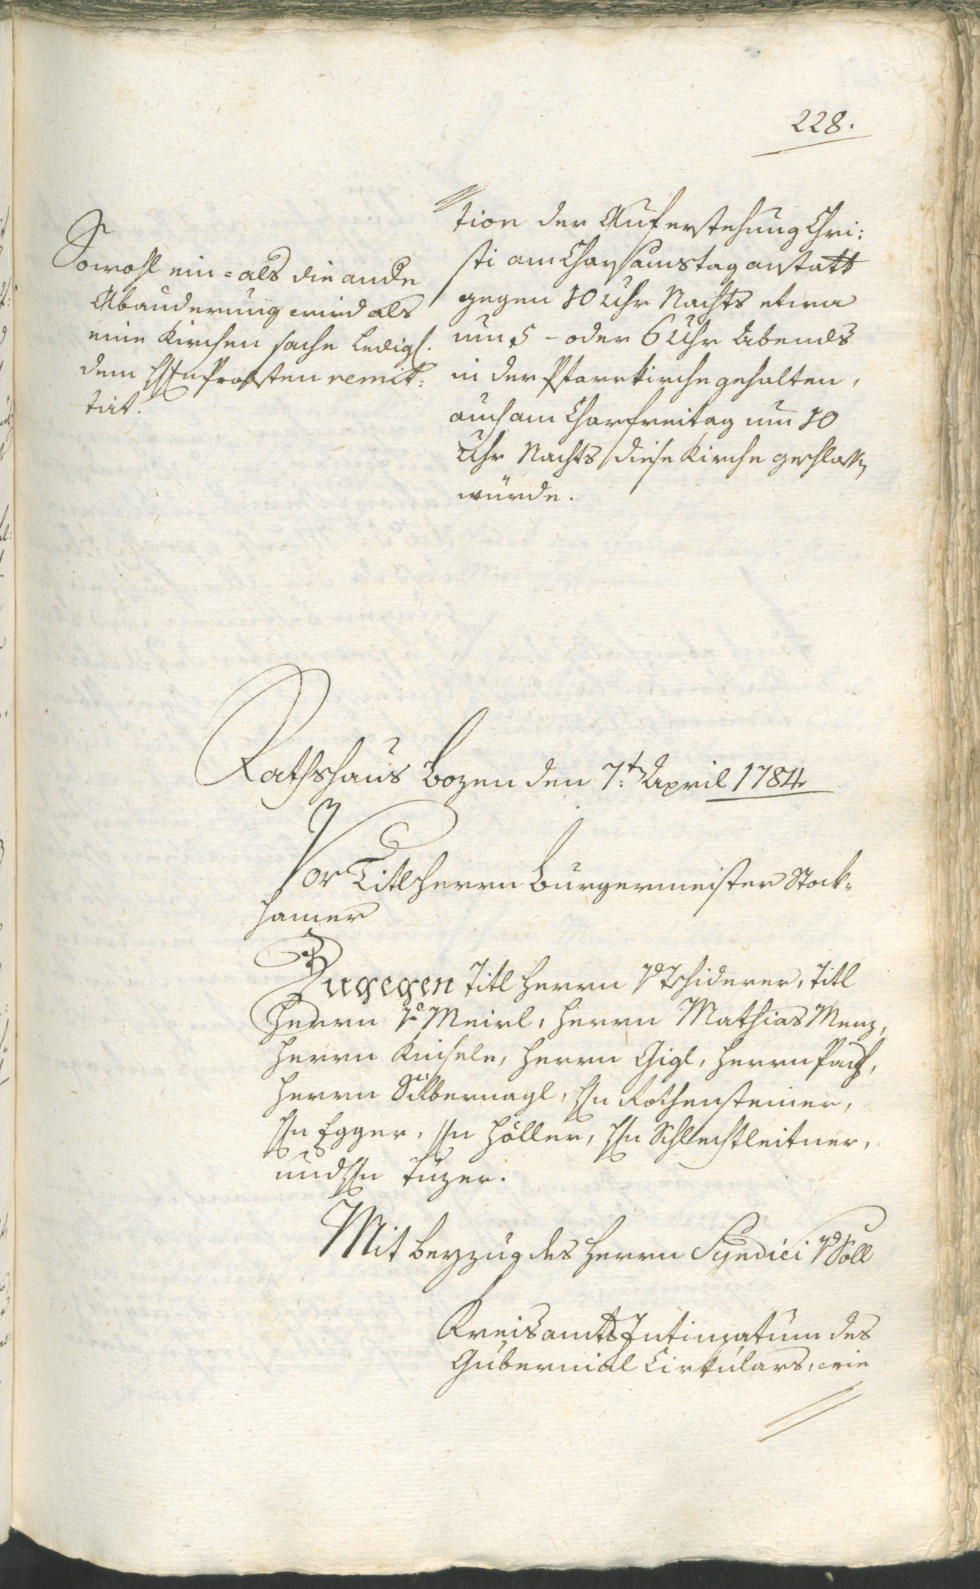 228.
Sowohl ein- als die ande
Abänderung wird als
eine Kirchen sache Ledigl.
dem HHn Probsten remit:
tirt.
tion der Auferstehung Chri:
sti am Charsamstag anstatt
gegen 10 Uhr Nachts etwa
um 5 - oder 6 Uhr Abends
in der Pfarrkirche gehalten,
auch am Charfreitag um 10
Uhr Nachts diese Kirche geschlossen
würde.
Rathshaus Bozen den 7.t April 1784
Vor Titl Herrn Burgermeister Stock-
hamer
Zugegen Titl Herrn v Tschiderer, Titl
Herrn v Meirl, Herrn Mathias Menz,
Herrn Knisele, Herrn Gigl, Herrn
Herrn Silbernagl, Hn Rothensteiner,
Hn Egger, Hn Höller, Hn Schlechtleitner,
und Hn Tuzer.
Mit beyzug des Herrn Syndici v Söll
Kreisamts Intimatum des
Gubernial Cirkulars, wie